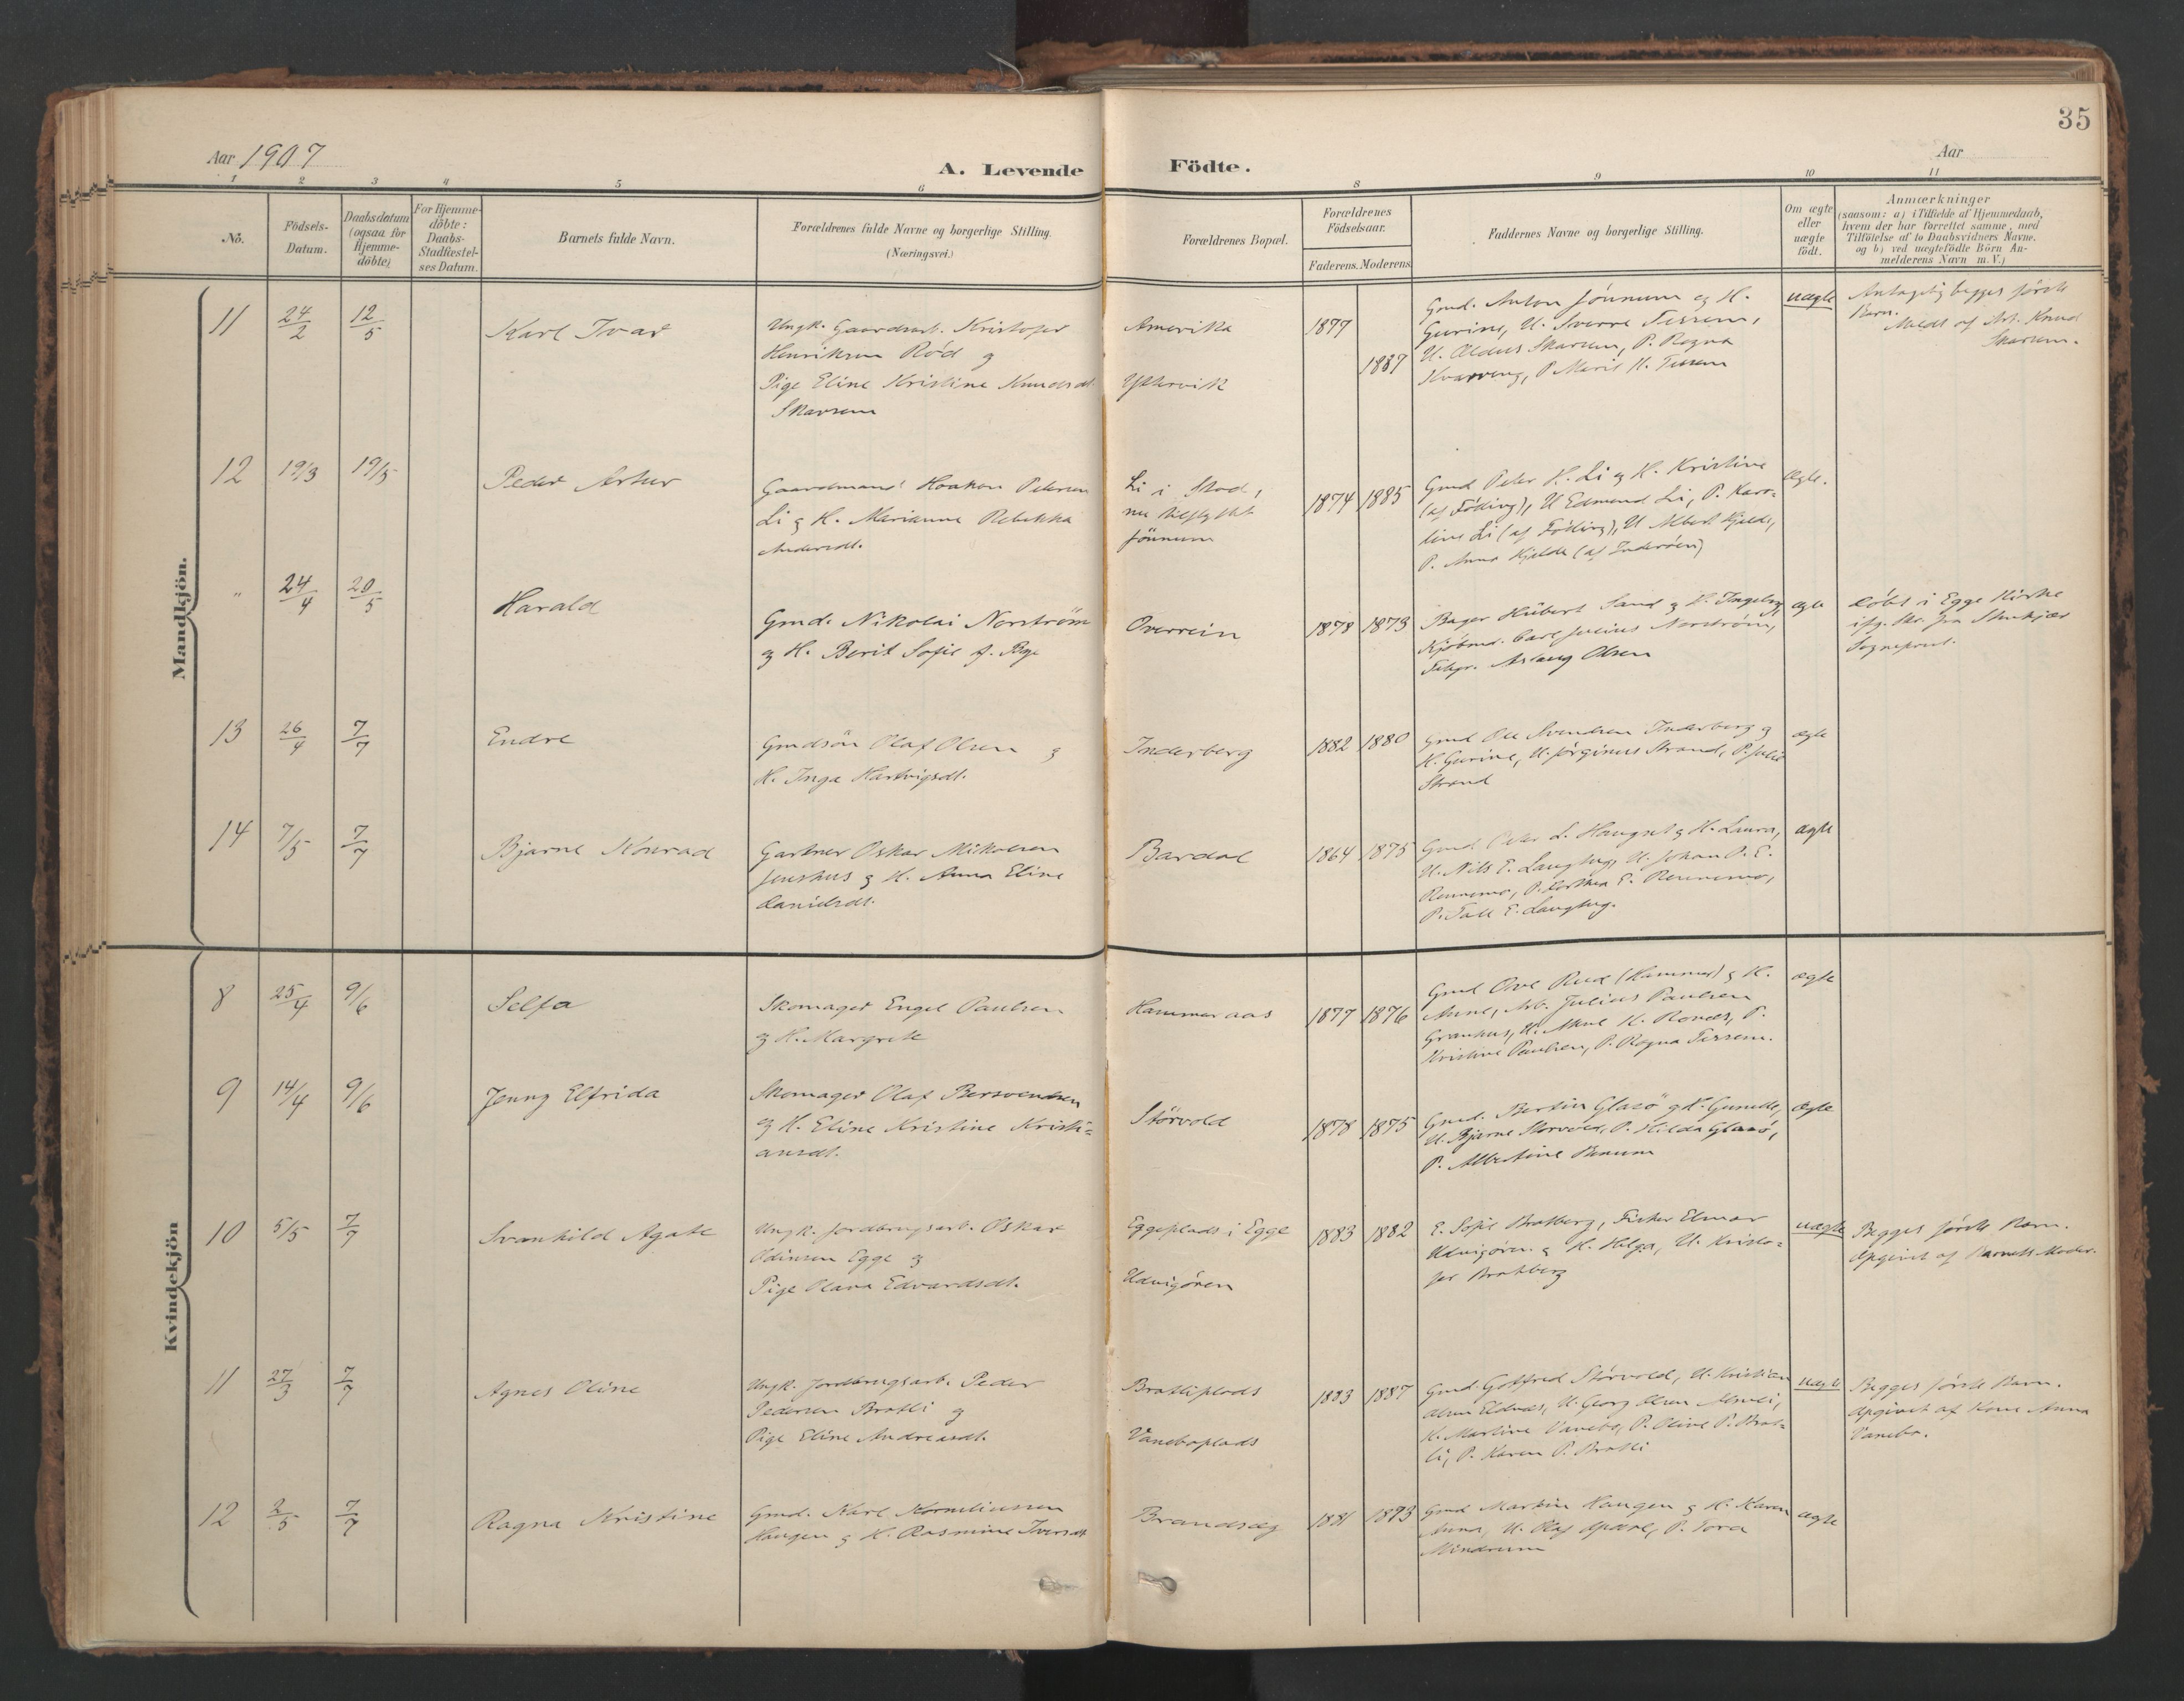 35
Aar 1907
A. Levende Födte.
Aar
1 2 3 4 5 6 8 9 10 11
No.
Födsels-
Datum.
Daabsdatum
(ogsaa for
Hjemme-
döbte)
For Hjemme-
döbte:
Daabs-
Stadfæstel-
ses Datum.
Barnets fulde Navn.
Forældrenes fulde Navne og borgerlige Stilling.
(Næringsvei.)
Forældrenes Bopæl.
Forældrenes
Födselsaar.
Faderens. Moderens.
Faddernes Navne og borgerlige Stilling.
Om ægte
eller
uægte
födt.
Anmærkninger
(saasom: a) i Tilfælde af Hjemmedaab,
hvem der har forrettet samme, med
Tilföielse af to Daabsvidners Navne,
og b) ved uægtefödte Börn An-
melderens Navn m. V.)
Mandkjön.
11
24/2
12/5
Karl Ivar
Ungk. Gaardarb. Kristofer
Henriksen Röd og
Pige Eline Kristine Knudsdt.
Skavsem
Amerika
Yttervik
1877
1887
Gmd. Anton Jönnum og H.
Gurine, U. Sverre Tessem,
U. Aldus Skavsem, P. Ragna
Kvarveng, P. Marit H. Tessem
uægte
Antagelig begges förste
Barn.
Meldt af Arb. Knud
Skavsem.
12
19/3
19/5
Peder Artur
Gaardmand Haakon Petersen
Li og H. Marianna Rebekka
Andersdt.
Li i Stod,
nu tilflyttet
Jönnum
1874
1885
Gmd Peter H. Li og H. Kristine
(af Földing), U Edmund Li, P. Karo-
line Li (af Földing), U Albert Kjelde,
P. Anna Kjelde (af Inderöen)
Ægte.
"
24/4
20/5
Harald
Gmd. Nikolai Norström
og H. Berit Sofie f. Bge
Overrein
1878
1873
Bager Hübert Sand og H. Ingeborg,
Kjöbmd. Carl Julius Norström,
Telegr. Aslaug Olsen
ægte
Döbt i Egge Kirke
ifg. Skr. fra Stenkjær
Sognepræst.
13
26/4
7/7
Endre
Gmdsön Olaf Olsen og
H. Inga Hartvigsdt.
Inderberg
1882
1880
Gmd Ole Svendsen Inderberg og
H. Gurine, U. Jörginus Strand, P. Julie
Strand
ægte
14
7/5
7/7
Bjarne Konrad
Gartner Oskar Mikalsen
Jenshus og H. Anna Eline
Danielsdt.
Bardal
1864
1875
Gmd Peter L. Haugset og H. Laura,
U. Nils E. Langhug, U. Johan P. E.
Rennemo, P. Dorthea E. Rennemo,
P. Tall E. Langhug.
ægte
Kvindekjön
8
25/4
9/6
Selfa
Skomager Engel Paulsen
og H. Margrete
Hammeraas
1877
1876
Gmd Ove Rud (Hammer) og H.
Anne, Arb. Julius Paulsen
Granhus, U. Akne K. Ronæs, P.
Kristine Paulsen, P. Ragna Tessem.
ægte
9
14/4
9/6
Jenny Elfrida
Skomager Olaf Bersvendsen
og H. Eline Kristine Kristi-
ansdt.
Störvold
1878
1875
Gmd. Bertin Glasö og H. Gunelle,
U. Bjarne Storvold, P. Hilda Glasö,
P. Albertine Benum
Ægte
10
5/5
7/7
Svanhild Agate
Ungk. Jordbrugsarb. Oskar
Odinsen Egge og
Pige Olava Edvardsdt.
Eggeplads i Egge
Udvigören
1883
1882
E. Sofie Bratberg, Fisker Elmar
Udvigören og H. Helga, U. Kristo-
fer Bratberg
uægte
Begges förste Barn.
Opgivet af Barnets Moder.
11
27/3
7/7
Agnes Oline
Ungk. Jordbrugsarb. Peder
Pedersen Bratli og
Pige Eline Andreasdt.
Bratliplads
Vaneboplads
1883
1887
Gmd. Gotfred Störvold, U. Kristian
Olsen Eldnæs, U. Georg Olsen
K. Martine Vanebo, P. Oline P. Brat-
li, P. Karen P. Bratli
uægte
Begges förste Barn.
Opgivet af Kone Anna
Vanebo.
12
2/5
7/7
Ragna Kristine
Gmd. Karl Korneliussen
Haugen og H. Rasmine Iversdt
Brandsæg
1881
1873
Gmd Martin Haugen og H. Karen
Anna, U. Olaf Opdal, P. Tora
Mindrum
ægte